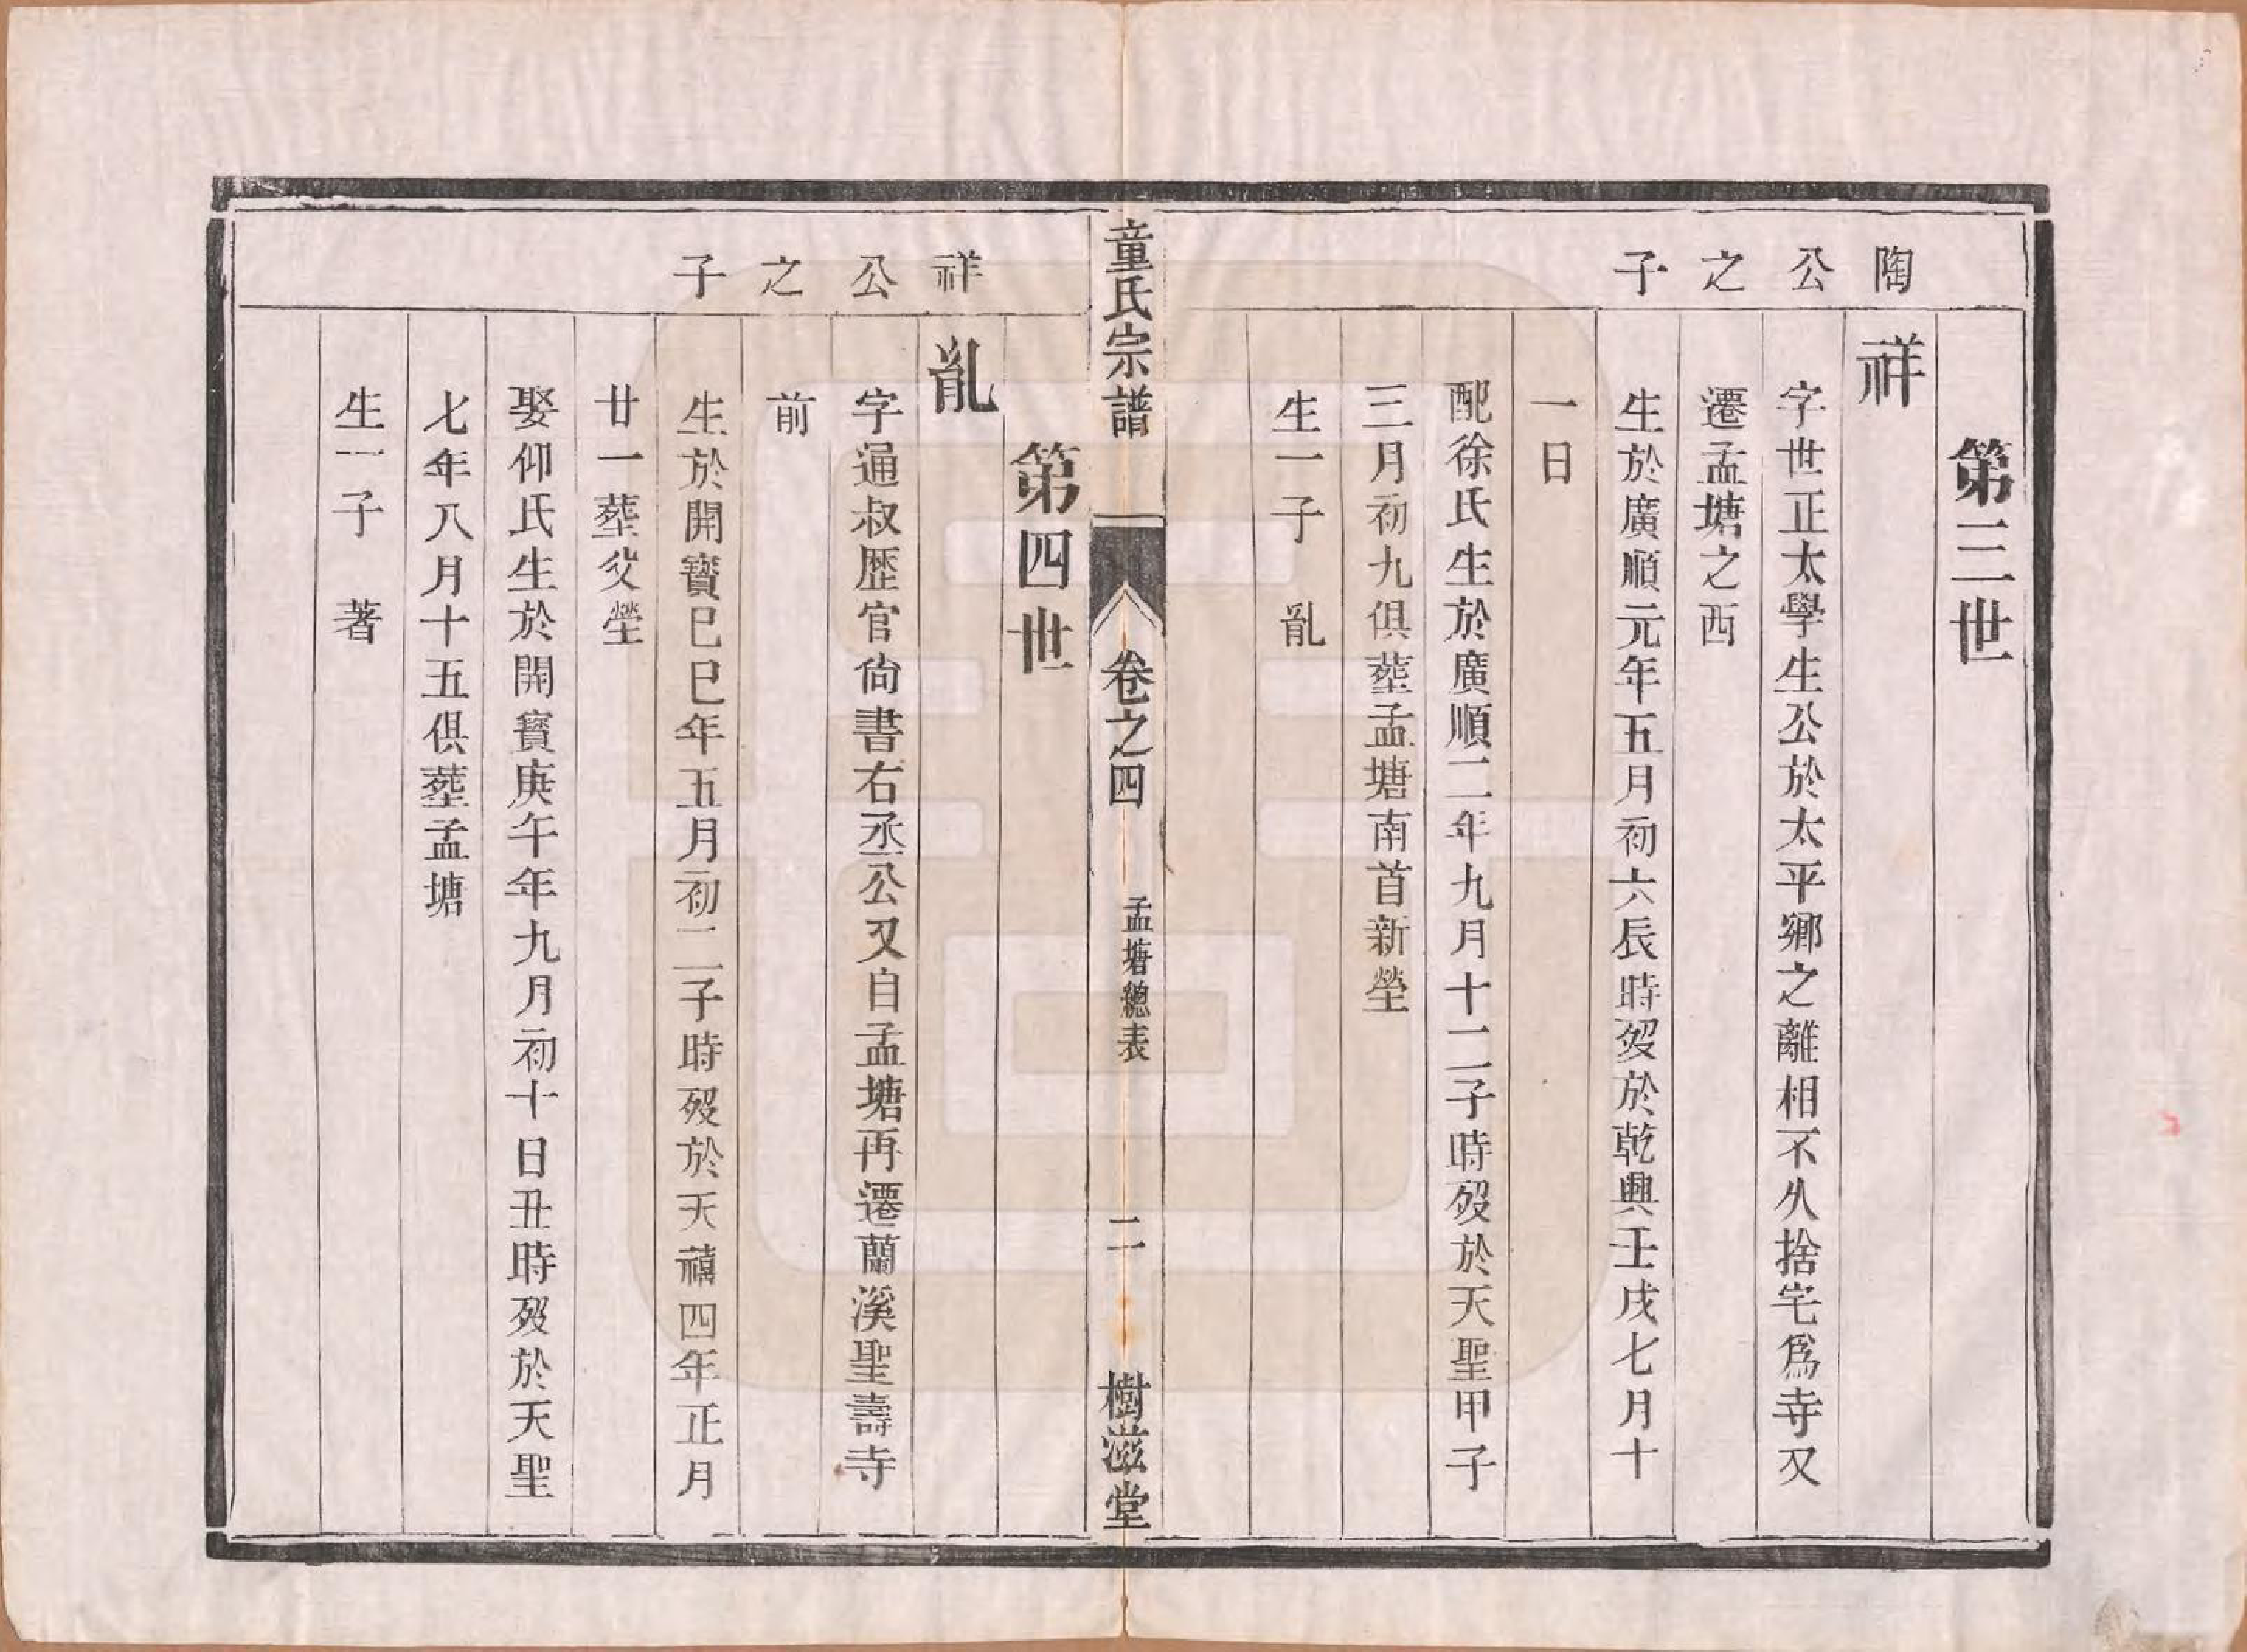 第三世
陶公之子
祥
字世正太學生公於太平鄉之離相不久捨宅爲寺又
遷孟塘之西
生於廣順元年五月初六辰時歿於乾興壬戌七月十
一日
配徐氏生於廣順二年九月十二子時歿於天聖甲子
三月初九俱葬孟塘南首新塋
生一子　亂
童氏宗譜　卷之四　孟塘總表　二　樹滋堂
第四世
祥公之子
亂
字通叔歷官尙書右丞公又自孟塘再遷蘭溪聖壽寺
前
生於開寶己巳年五月初二子時歿於天禧四年正月
廿一葬父塋
娶仰氏生於開寶庚午年九月初十日丑時歿於天聖
七年八月十五俱葬孟塘
生一子　著